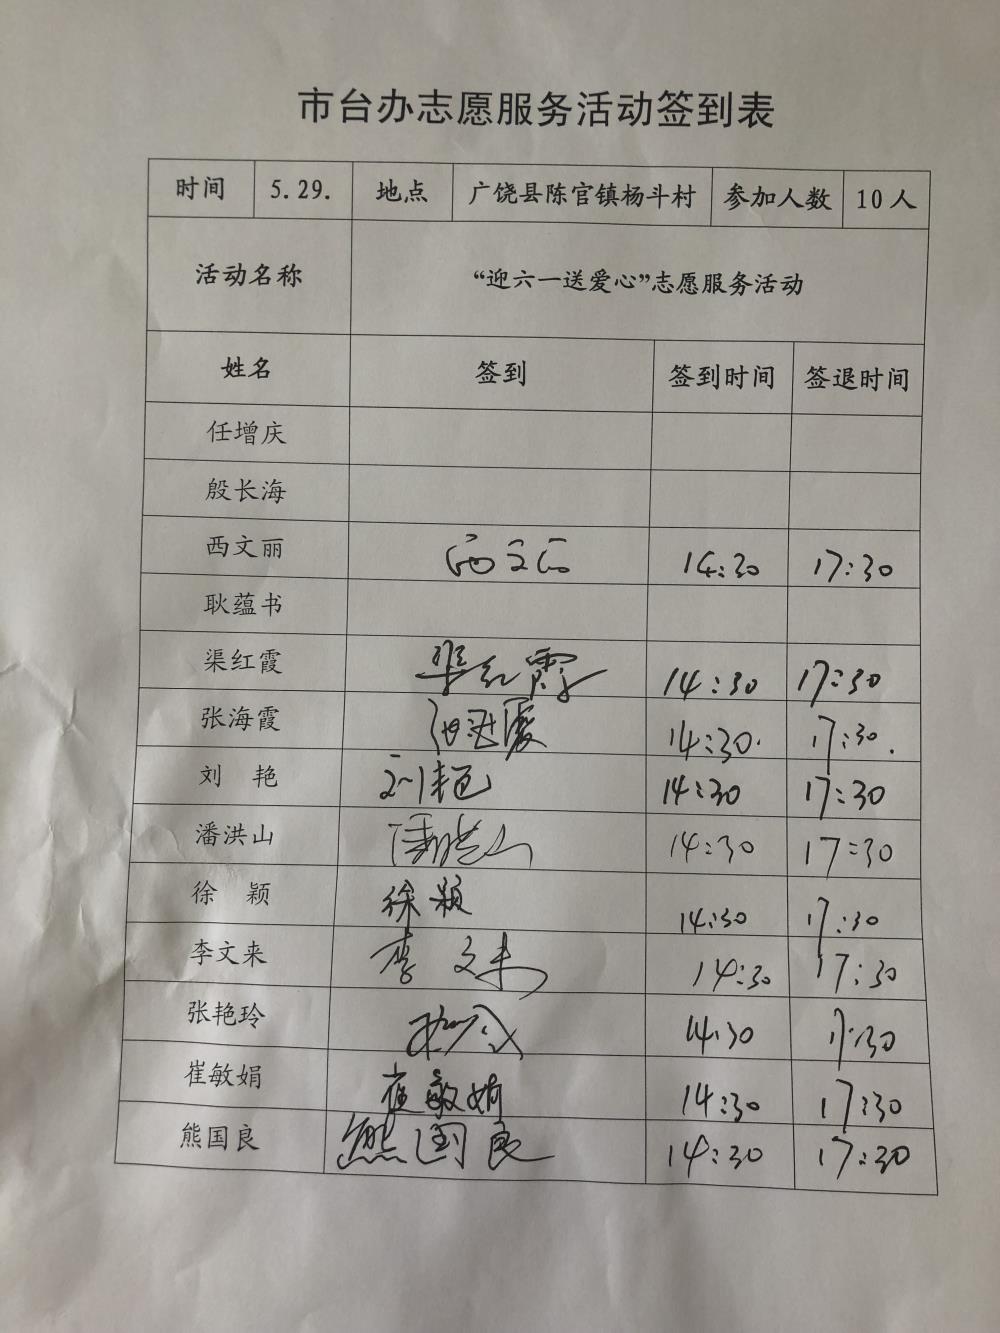 市台办志愿服务活动签到表
时间 5.29. 地点 广饶县陈官镇杨斗村 参加人数 10人
活动名称 “迎六一送爱心”志愿服务活动
姓名 签到 签到时间 签退时间
任增庆
殷长海
西文丽 西文丽 14:30 17:30
耿蕴书
渠红霞 渠红霞 14:30 17:30
张海霞 张海霞 14:30. 17:30.
刘 艳 刘艳 14:30 17:30
潘洪山 潘洪山 14:30 17:30
徐 颖 徐颖 14:30 17:30
李文来 李文来 14:30 17:30
张艳玲 14:30 17:30
崔敏娟 崔敏娟 14:30 17:30
熊国良 熊国良 14:30 17:30